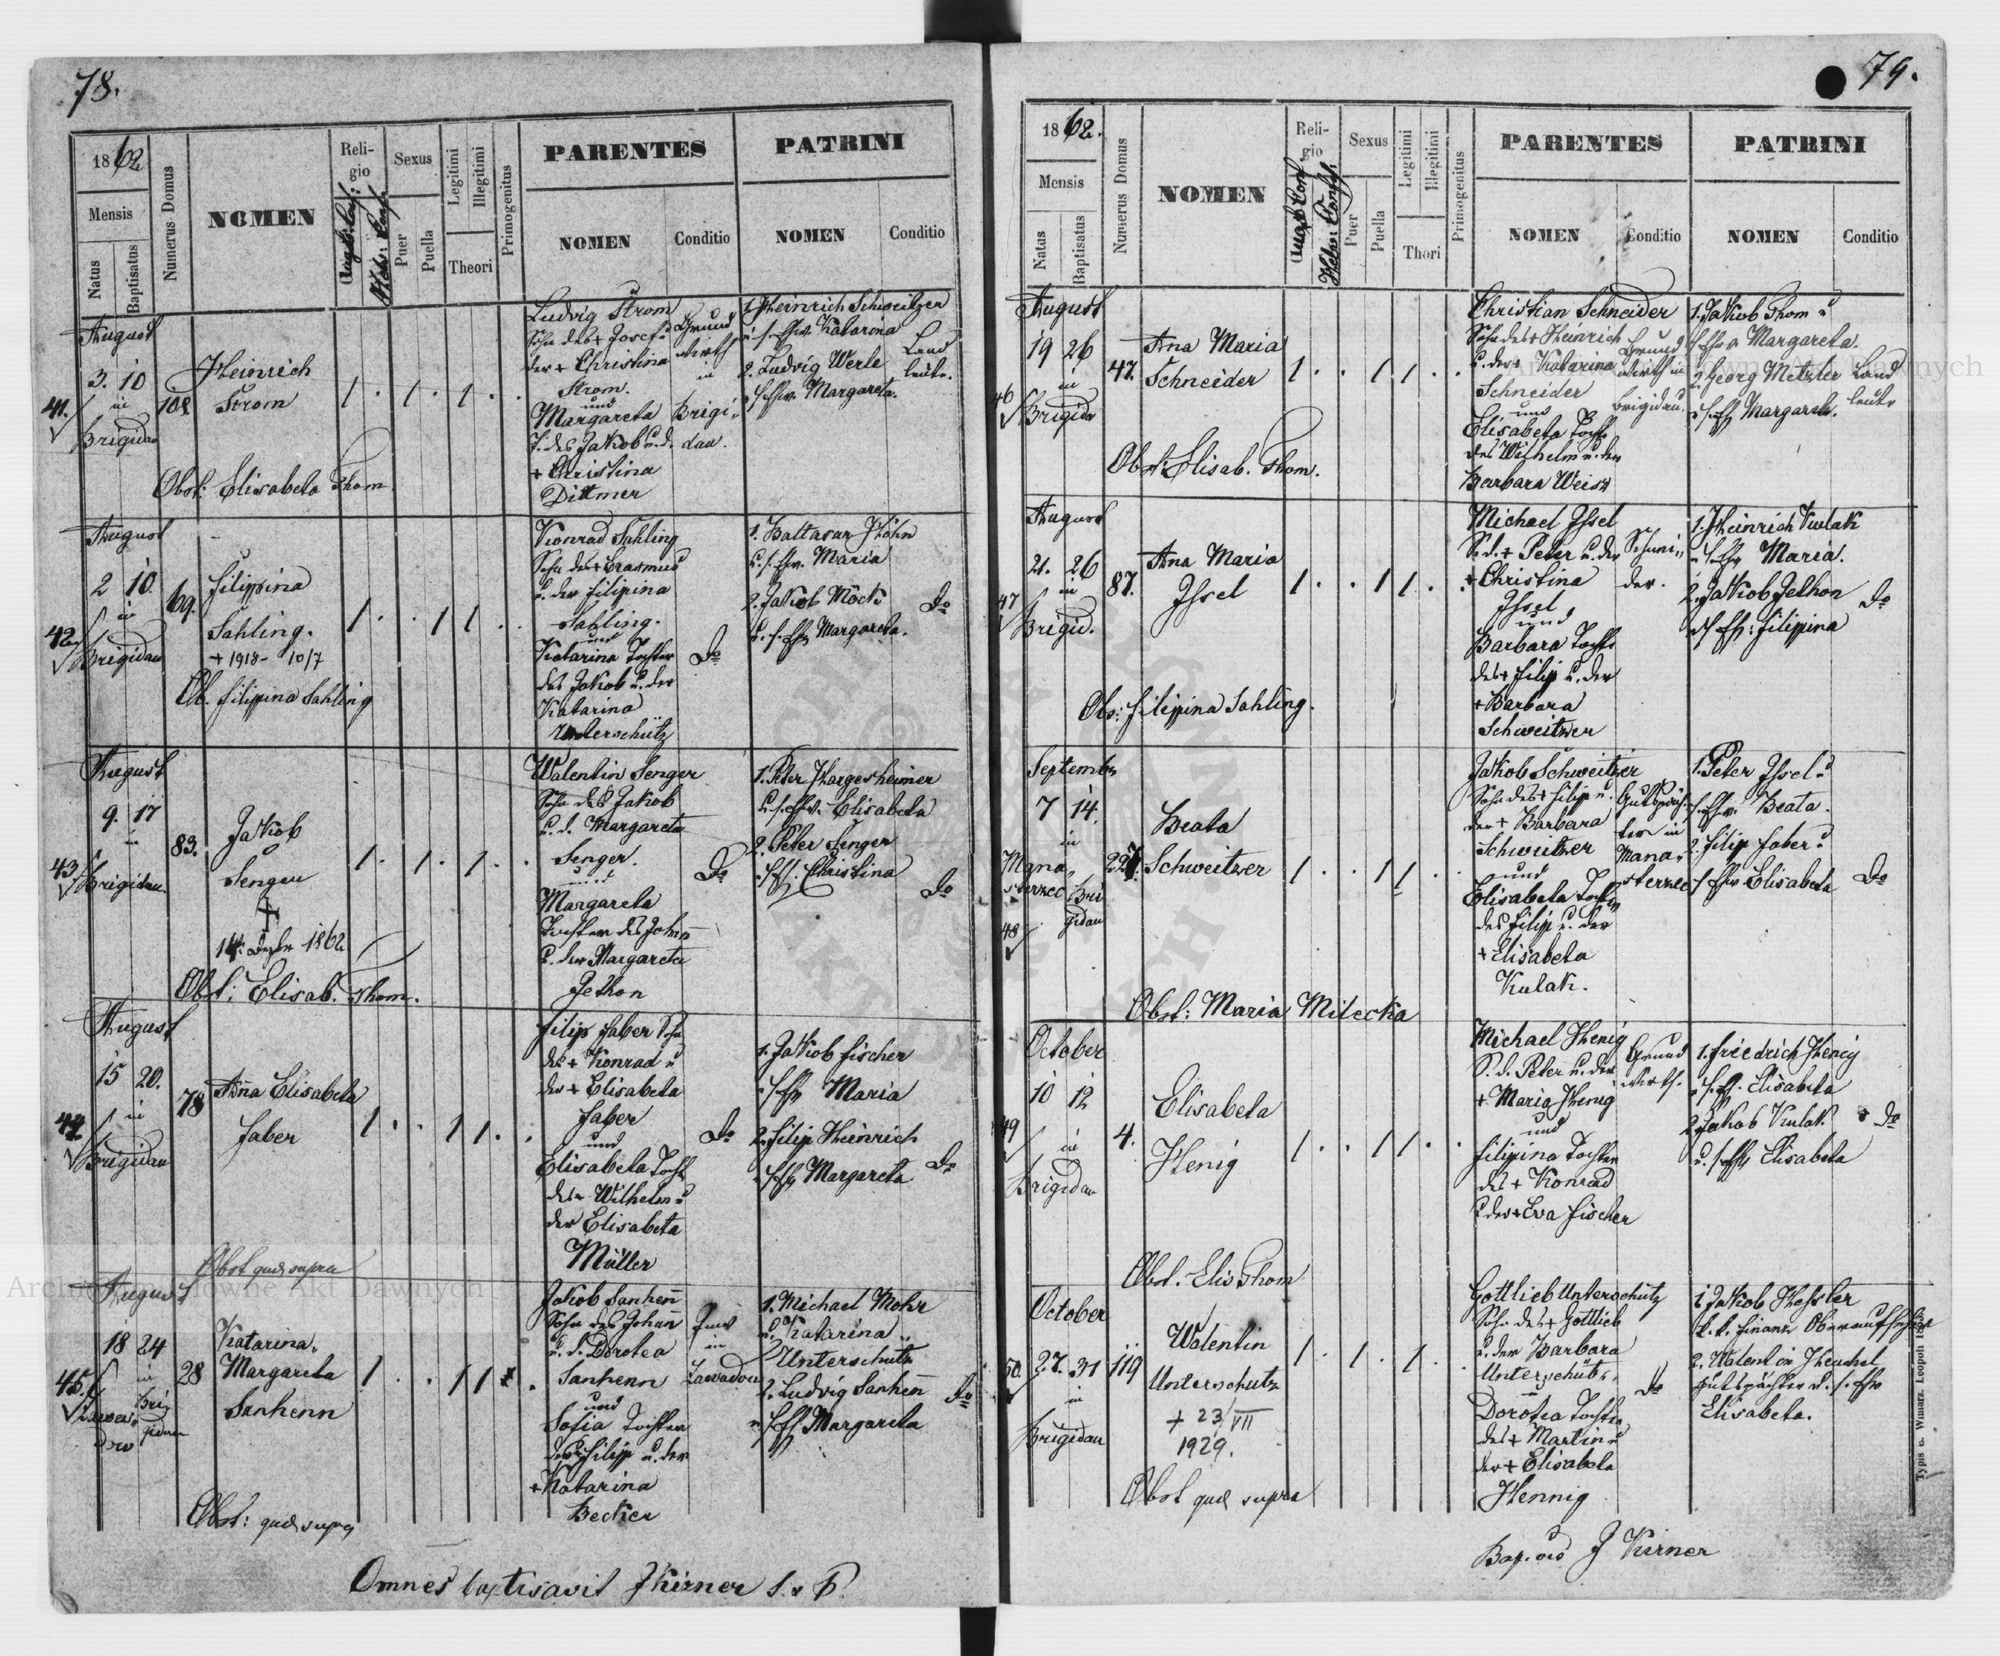 78.
1862
Mensis
Natus
Baptisatus
Numerus Domus
NOMEN
Reli-
gio
Augsb: Conf:
Helv: Conf:
Sexus
Puer
Puella
Legitimi
Illegitimi
Theori
Primogenitus
PARENTES
NOMEN
Conditio
PATRINI
NOMEN
Conditio
41.
August
3. 10
in
Brigidau
108
Heinrich
Strom
Obst: Elisabeta Thom
Ludvig Strom
Sohn des + Josef u
der + Christina
Strom.
und
Margareta
T. des Jakob u. d.
+ Christina
Dittmer
Grund
wirth
in
Brigi-
dau.
1. Heinrich Schweitzer
u. s. Ehw. Katarina
2. Ludvig Werle
s. Ehw. Margareta.
Land
leute.
42
August
2 10.
in
Brigidau
69.
Filippina
Sahling.
+ 1918 - 10/7
Ob. Filippina Sahling
Konrad Sahling
Sohn des + Erasmus
u. der Filipina
Sahling.
und
Katarina Tochter
des Jakob u. der
Katarina
Unterschütz
Do
1. Baltasar Höhn
u. s. Ehw. Maria
2. Jakob Möck
u. s. Ehw Margareta.
Do
43
August
9. 17
in
Brigidau.
83.
Jakob
Senger
+
14. Dezbr 1862
Obst: Elisab. Thom.
Walentin Senger
Sohn des Jakob
u. d. Margareta
Senger.
und
Margareta
Tochter des Johan
u. der Margareta
Jethon
Do
1. Peter Hargesheimer
u. s. Ehw. Elisabeta
2. Peter Senger
Christina
Do
44
August
15 20.
in
Brigidau
78
Anna Elisabeta
Faber
Obst quae supra
Filip Faber Sohn
des + Konrad u
der + Elisabeta
Faber
und
Elisabeta Tocht
des Wilhelm u
der Elisabeta
Müller
Do
1. Jakob Fischer
Maria
2. Filip Heinrich
Margareta
Do
45.
August
18 24
in
Bri
gidau
28
Katarina
Margareta
Sanhenn
Obst: quae supra
Jakob Sanhenn
Sohn des Johan
u. d. Dorotea
Sanhenn
und
Sofia Tochter
des Filip u. der
+ Katarina
Becker
in
Zawadow
1. Michael Mohr
u. Katarina
Unterschütz
2. Ludvig Sanhenn
Margareta
Do
Omnes baptisavit JKirner
79.
1862.
Mensis
Natus
Baptisatus
Numerus Domus
NOMEN
Reli-
gio
Augsb Conf
Helv: Conf:
Sexus
Puer
Puella
Legitimi
Illegitimi
Thori
Primogenitus
PARENTES
NOMEN
Conditio
PATRINI
NOMEN
Conditio
46
August
19 26
in
Brigidau
47.
Ana Maria
Schneider
Obst: Elisab. Thom.
Christian Schneider
Sohn des + Heinrich
u. der + Katarina
Schneider
und
Elisabeta Tocht.
des Wilhelm u. der
Barbara Weisz
Grund
wirth in
Brigidau.
1. Jakob Thom u
s. Ehw Margareta.
2. Georg Metzler
Margareta.
Land
leute
47
August
21. 26
in
Brigid.
87.
Ana Maria
Issel
Obs: Filippina Sahling.
Michael Issel
S. d. + Peter u. der
+ Christina
Issel
und
Barbara Tocht.
des + Filip u. der
+ Barbara
Schweitzer
Schnei-
der.
1. Heinrich Kulak
Maria.
2. Jakob Jethon
Filippina
Do
48
Septemb
7 14.
in
Mana-
sterzec Bri
gidau
227.
Beata
Schweitzer
Obst: Maria Milecka
Jakob Schweitzer
Sohn des + Filip u.
der + Barbara
Schweitzer
und
Elisabeta Tochter
des Filip u. der
+ Elisabeta
Kulak.
Gutspäch-
ter in
Mana-
sterzec
1. Peter Issel u
s. Ehw. Beata.
2. Filip Faber u
s. Ehw Elisabeta
Do
49
October
10 12
in
Brigidau
4.
Elisabeta
Henig
Obst. Elis Thom
Michael Henig
S. d. Peter u. der
+ Maria Henig
und
Filipina Tochter
des + Konrad
u. der + Eva Fischer
Grund
wirth.
1. Friedrich Henig
Elisabeta
2. Jakob Kulak
Elisabeta
Do
50.
October
27. 31
in
Brigidau
119
Walentin
Unterschutz
+ 23/VII
1929.
Obst quae supra
Gottlieb Unterschutz
Sohn des + Gottlieb
u. der Barbara
Unterschütz
u
Dorotea Tochter
des + Martin u
der + Elisabeta
Hennig
Do
1. Jakob Hessler
k. k. Finanz Oberaufseher
2. Walentin Heuchel
Gutspächter u. s. Ehw
Elisabeta.
J Kirner
Typis v. Winiarz. Leopoli
Archiwum Główne Akt Dawnych
Archiwum Główne Akt Dawnych